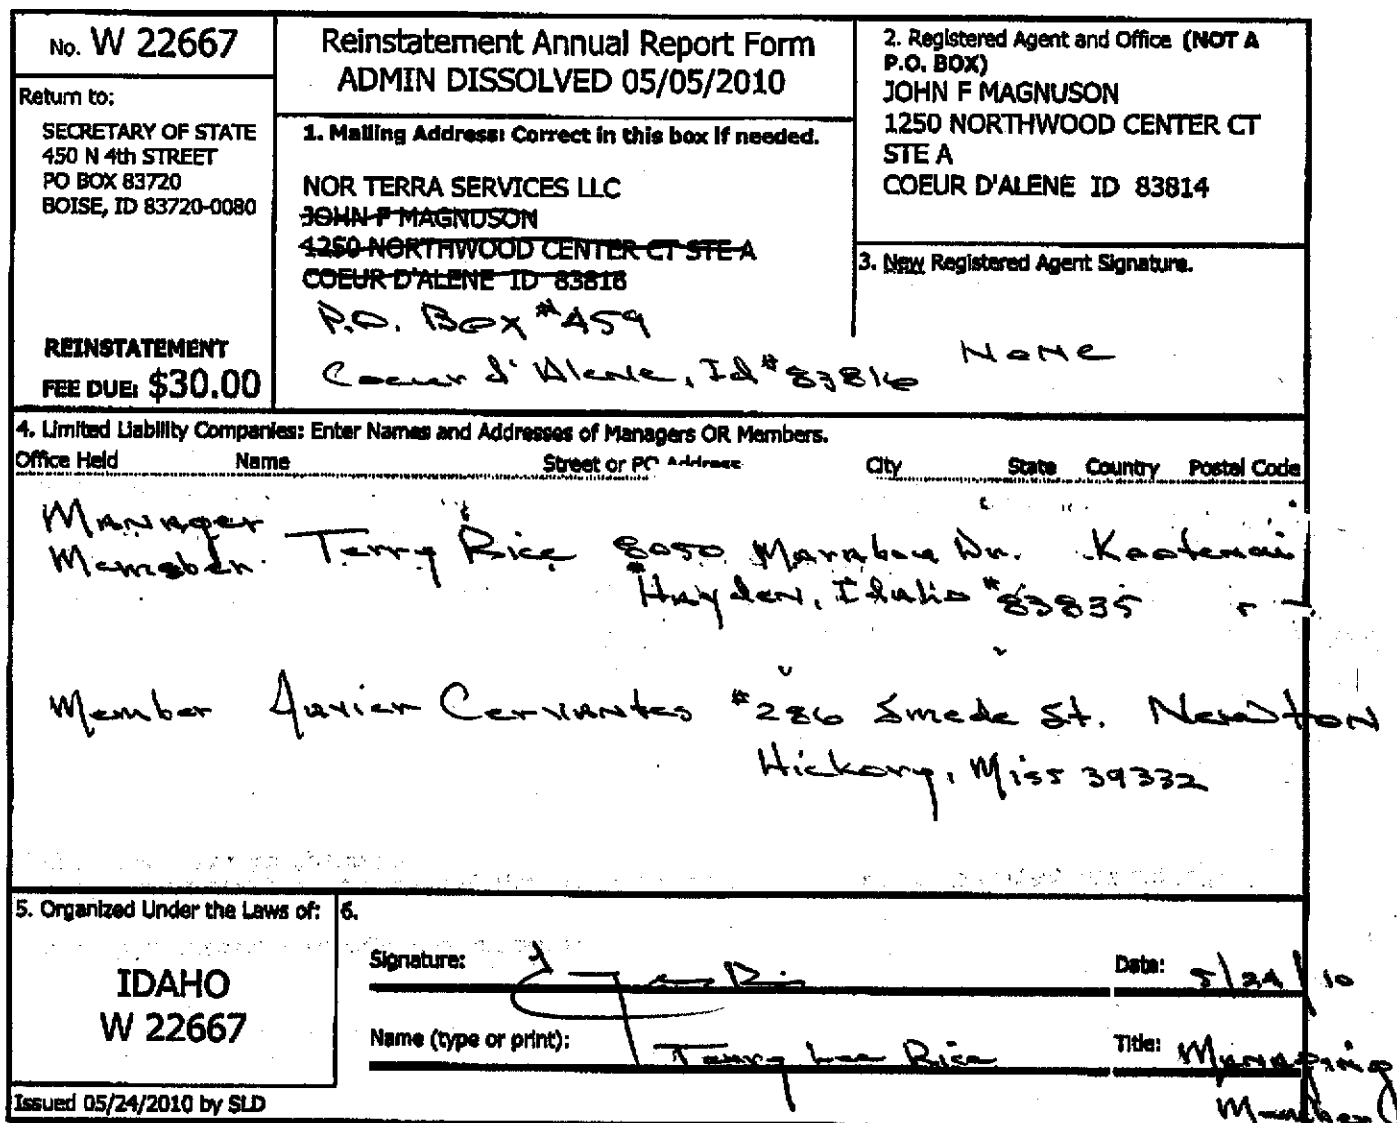 No. W 22667
Return to:
SECRETARY OF STATE
450 N 4th STREET
PO BOX 83720
BOISE, ID 83720-0080
REINSTATEMENT
FEE DUE: $30.00
Reinstatement Annual Report Form
ADMIN DISSOLVED 05/05/2010
1. Mailing Address: Correct in this box if needed.
NOR TERRA SERVICES LLC
JOHN F MAGNUSON
1250 NORTHWOOD CENTER CT STE A
COEUR D'ALENE ID 83816
P.O. Box #459
Coeur d'Alene, Id #83816
2. Registered Agent and Office (NOT A
P.O. BOX)
JOHN F MAGNUSON
1250 NORTHWOOD CENTER CT
STE A
COEUR D'ALENE ID 83814
3. New Registered Agent Signature.
None
4. Limited Liability Companies: Enter Names and Addresses of Managers OR Members.
Office Held Name Street or PO Address City State Country Postal Code
Manager
Member Terry Rice 8050 Dr. Kootenai
Hayden, Idaho #83835
Member Javier Cervantes #286 Smede St. Newton
Hickory, Miss 39332
5. Organized Under the Laws of:
IDAHO
W 22667
6.
Signature: Rice Date: 5/24/10
Name (type or print): Terry Lee Rice Title: Managing
Member
Issued 05/24/2010 by SLD